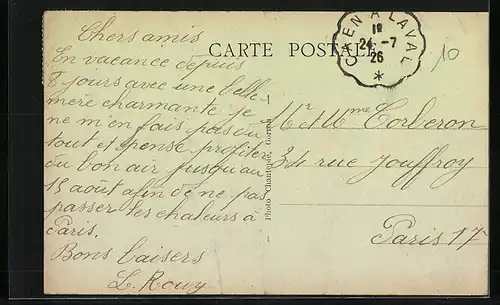 Chers amis
En vacance depuis
8 jours avec une belle-
mère charmante je
ne m'en fais pas du
tout et pense profiter
du bon air jusqu'au
15 août afin de ne pas
passer les chaleurs à
Paris.
Bons baisers
L. Rouy
CARTE POSTALE
CAEN A LAVAL
1º
24 -7
26
*
10
Mr et Mme Corberon
34 rue Jouffroy
Paris 17e
Photo Chantepie, Gorron